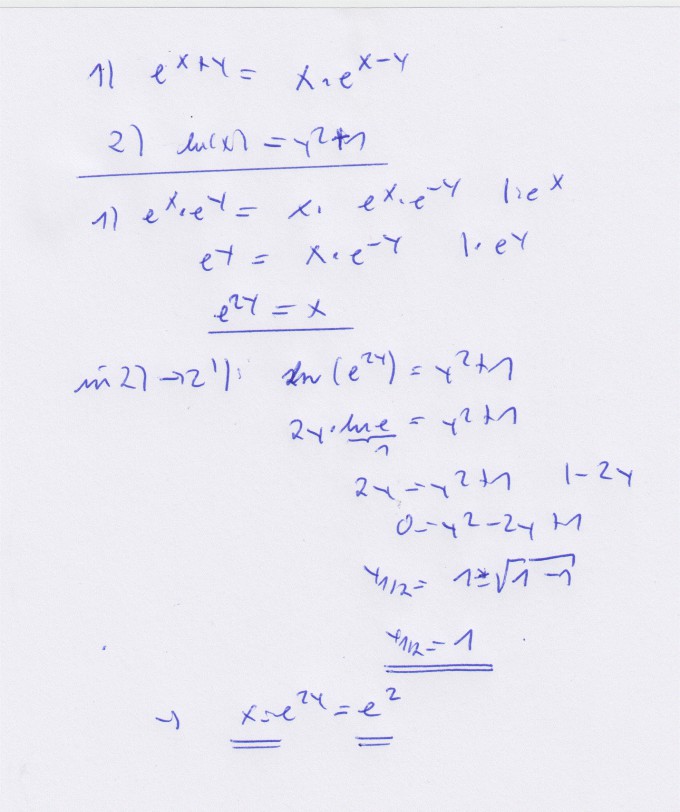 1) e^(x+y) = x·e^(x-y)
2) ln(x) = y²+1
1) e^x·e^y = x· e^x·e^-y |:e^x
e^y = x·e^-y |· e^y
e^2y = x
in 2) → 2'): ln(e^2y) = y²+1
2y·ln e = y²+1
1
2y = y²+1 |-2y
0 = y²-2y+1
y1/2 = 1±√1-1
y1/2 = 1
→ x = e^2y = e²